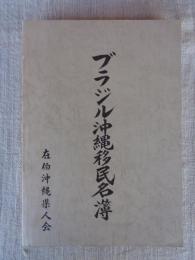 ブラジル沖縄移民名簿
在伯沖縄県人会